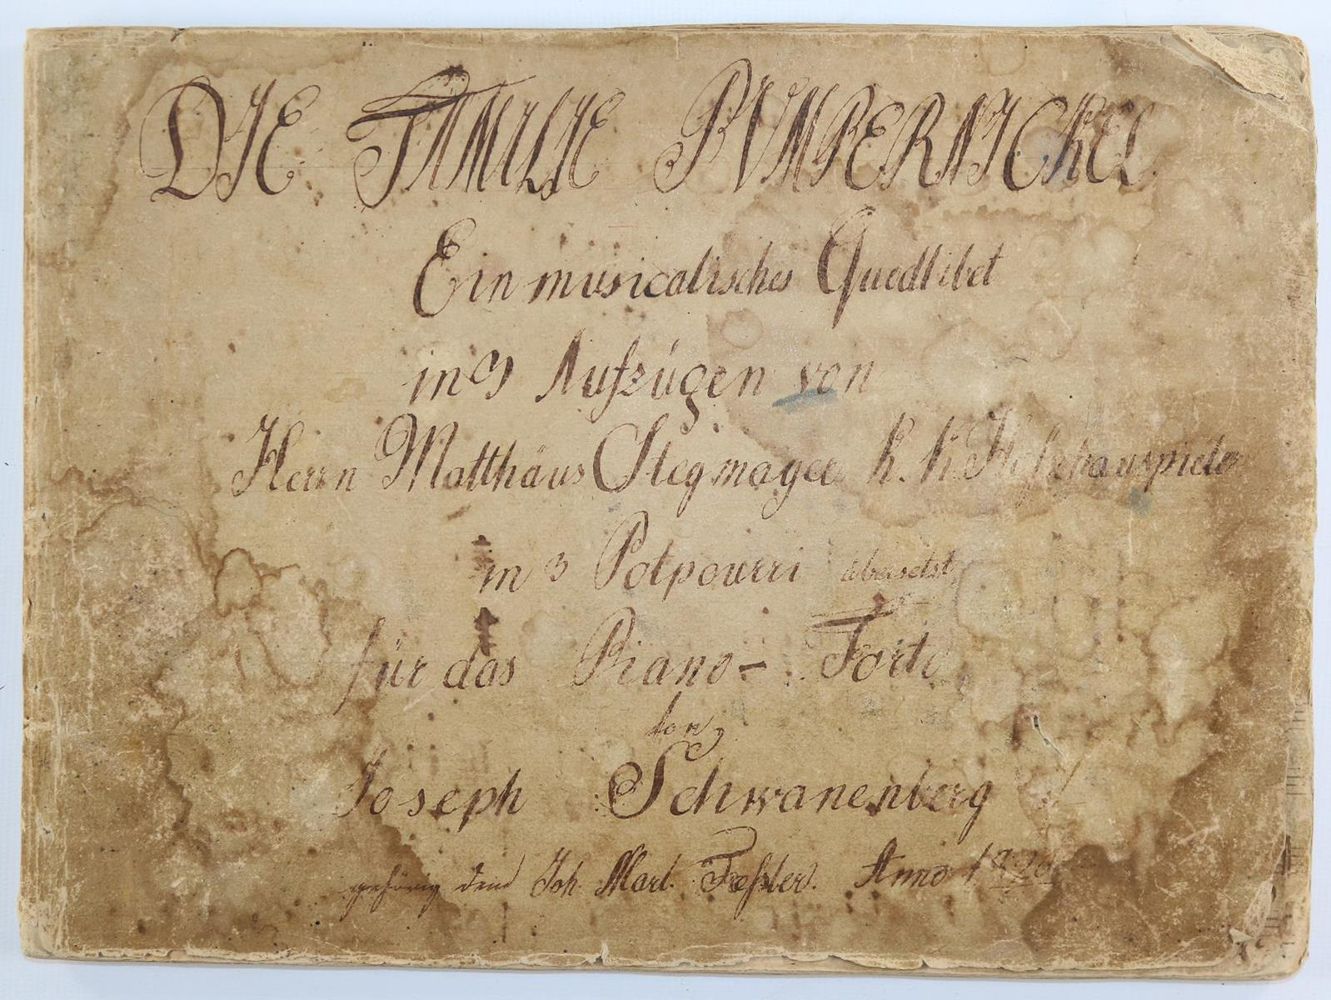 DIE FAMILIE PUMPERNICKEL
Ein musicalisches Quodlibet
in 3 Aufzügen von
Herrn Matthäus Stegmayer k. k. Hofschauspieler
in 3 Potpourri übersetzt
für das Piano- Forte
von
Joseph Schwanenberg
gehörig dem Joh. Mart. Feßler. Anno